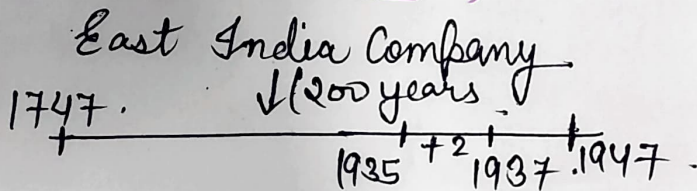 East India Company.
1747. ↓(200 years.
1935 +2 1937 .1947.